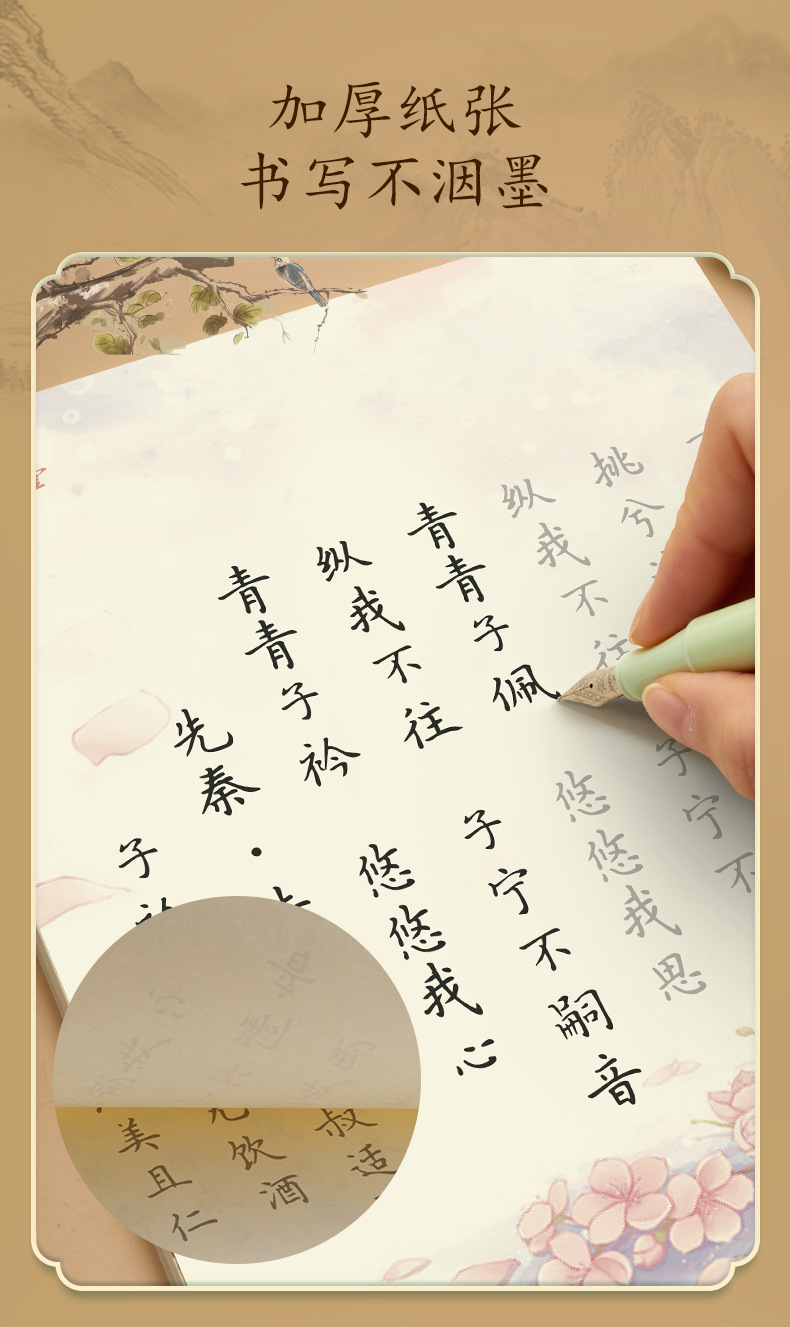 加厚纸张
书写不洇墨
子
先秦·
青青子衿 悠悠我心
纵我不往 子宁不嗣音
青青子佩 悠悠我思
纵我不往 子宁不
挑兮
美且仁
饮酒
叔适